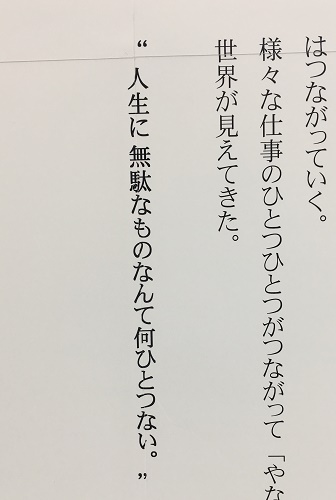 はつながっていく。
様々な仕事のひとつひとつがつながって「やな
世界が見えてきた。
“ 人生に 無駄なものなんて何ひとつない。”